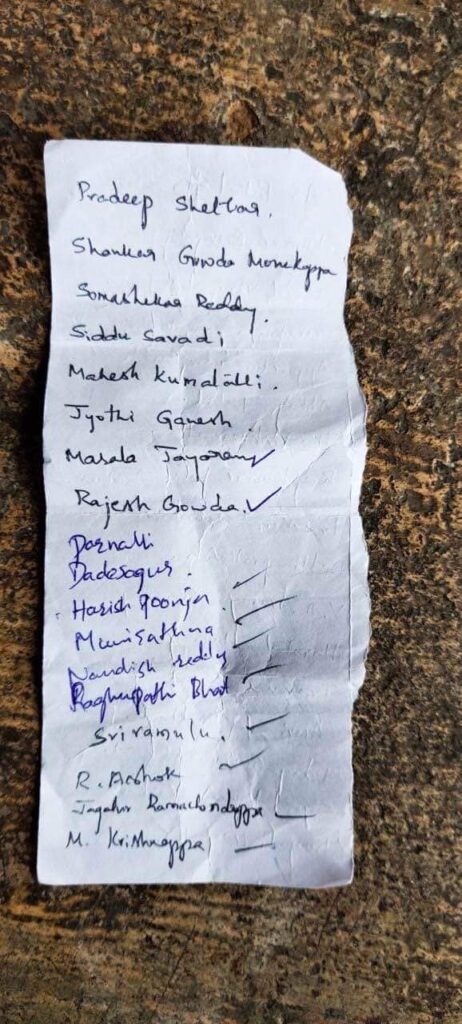 Pradeep Shettar.
Shankar Gowda Monekoppa
Somashekar Reddy.
Siddu Savadi
Mahesh Kumatalli.
Jyothi Ganesh.
Masala Jayoram ✓
Rajesh Gowda. ✓
Dadesogur.
Harish Poonja. ✓
Munirathna ✓
Nandish reddy ✓
Raghupathi Bhat ✓
Sriramulu. ✓
R. Ashok ✓
Ramachondrappa
M. Krishnappa